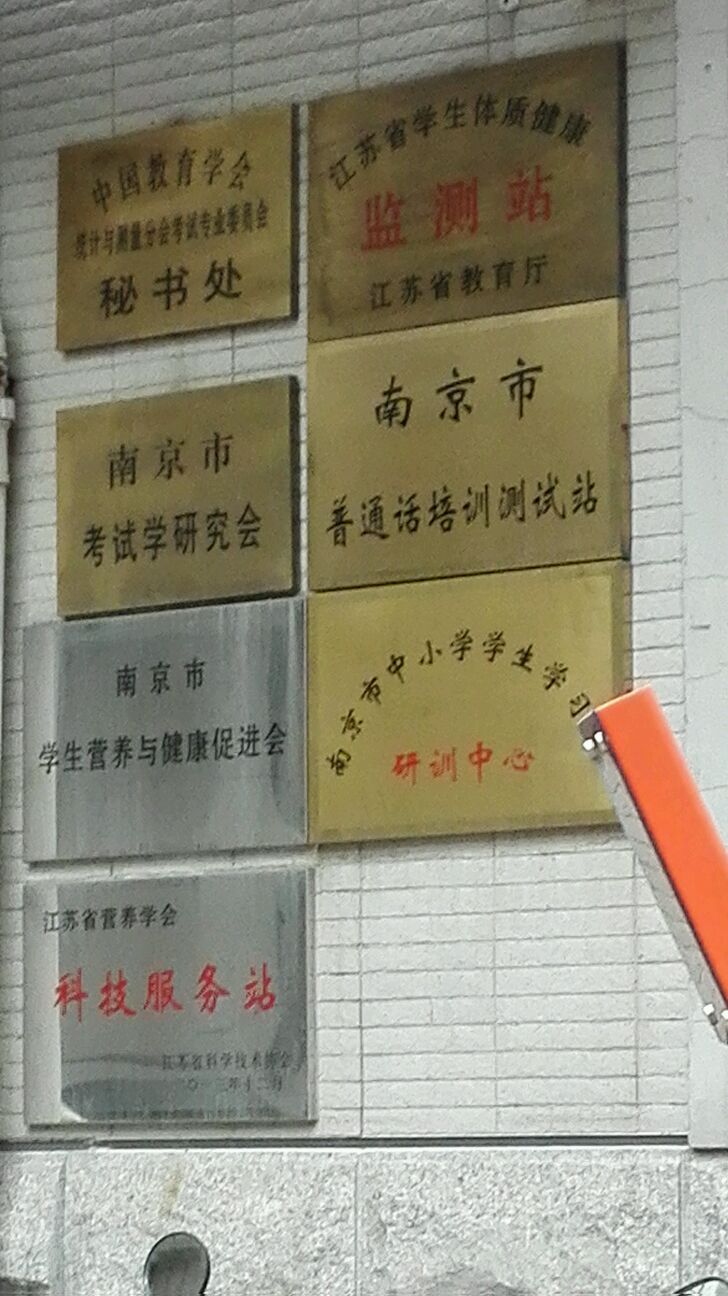 中国教育学会
统计与测量分会考试专业委员会
秘书处
江苏省学生体质健康
监测站
江苏省教育厅
南京市
考试学研究会
南京市
普通话培训测试站
南京市
学生营养与健康促进会
南京市中小学学生学习
研训中心
江苏省营养学会
科技服务站
江苏省科学技术协会
二〇一三年十二月